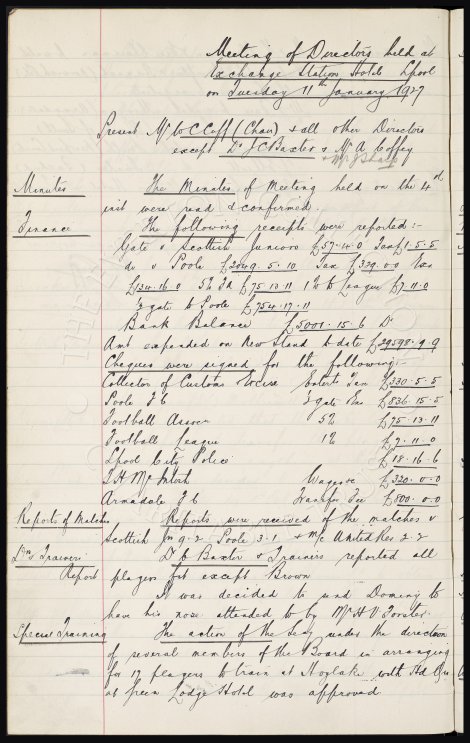 Meeting of Directors held at
Exchange Station Hotel Lpool
on Tuesday 11th January 1927
Present Mr W C Cuff (Chair) & all other Directors
except Dr J C Baxter & Mr A Coffey
& Mr J Sharp
Minutes The Minutes of Meeting held on the 4th
inst were read & confirmed.
Finance The following receipts were reported:-
Gate v Scottish Juniors £57.4.0 Tax £1.5.5
do v Poole £2049.5.10 Tax £329.00
£134.16.0 5% FA £75.13.11 1% to League £7.11.0
½ gate to Poole £754.17.11
Bank Balance £5001.15.6 Dr
Amt expended on New Stand to date £29598.9.9
Cheques were signed for the following:-
Collector of Customs & Excise Entert Tax £330.5.5
Poole F C ½ gate £836.15.5
Football Assocn 5% £75.13.11
Football League 1% £7.11.0
Lpool City Police £18.16.6
T H McIntosh Wages £320.0.0
Armadale F C Transfer Fee £500.0.0
Reports of Matches Reports were received of the matches v
Scottish Jnrs 9-2 Poole 3-1 & M/c United Res 2-2
Drs & Trainers' Dr Baxter & Trainers reported all
Report players fit except Brown
It was decided to send Dominy to
have his nose attended to by Mr H V
Special Training The action of the Secy under the direction
of several members of the Board in arranging
for 17 players to train at Hoylake with Hd Qrs
at Green Lodge Hotel was approved